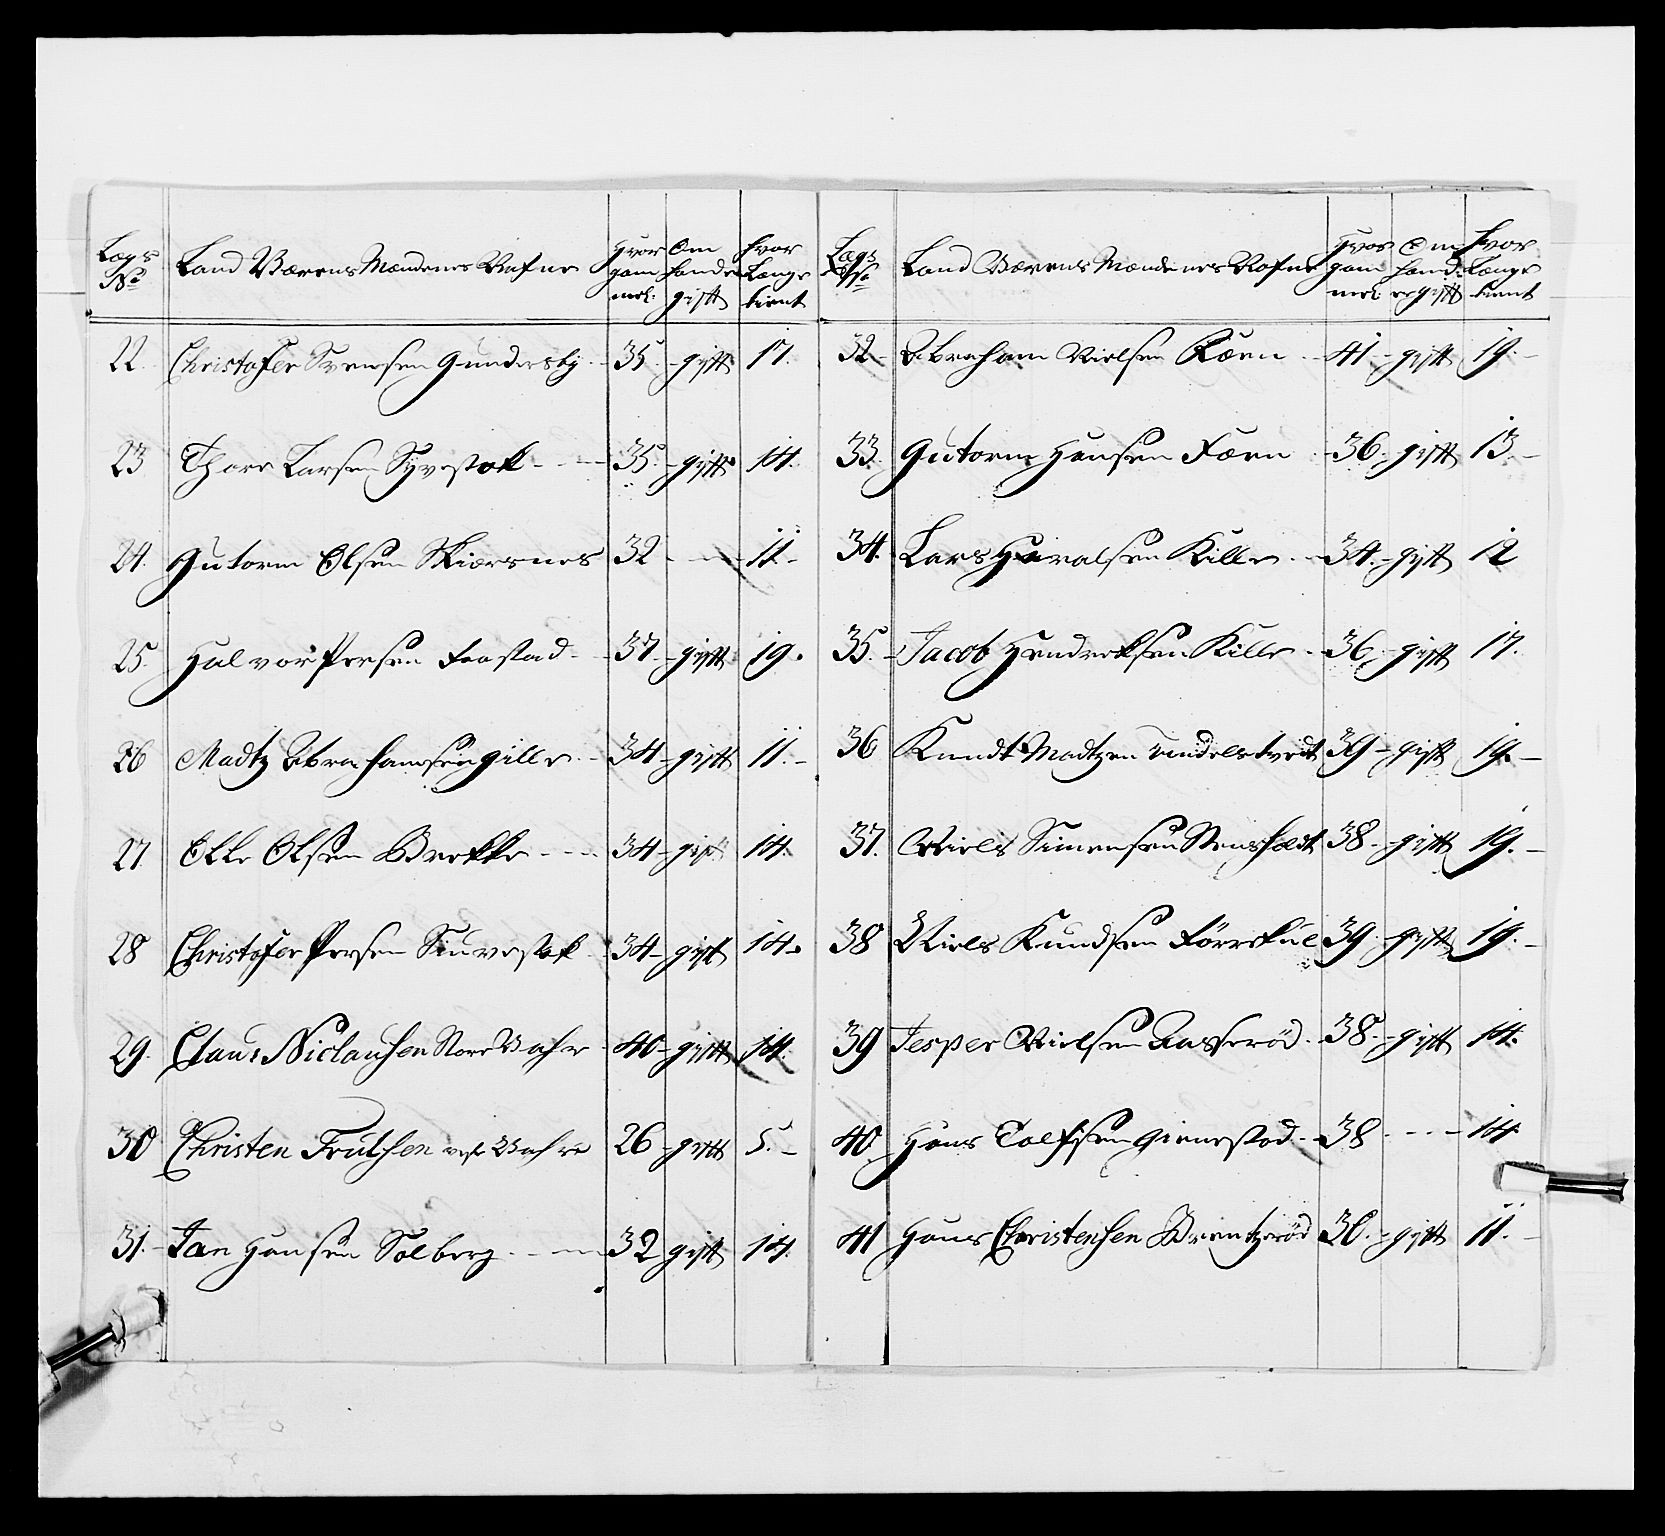 Lægs No Land Værens Mændenes Nafne Hvor gam mel. Om hand er gift hvor Længe tient
22. Christofer Svensen Gundersby 35. gift 17.
23 Thore Larsen Syvestok 35. gift 14.
24. Gutorm Olsen Skiørsnes 32 11
25. Halvor Persen Frostad 37 gift 19.
26 Madtz Abrahamsen gille 34 gift 11.
27. Olle Olsen Brekke 34 gift 14.
28 Christofer Persen Siuvestok 34 gift 14.
29. Claus Niclausen Store Vahre 40 gift 14.
30 Christen Frutsen Vahre 26 gift 5.
31. Jan Hansen Solberg 32 gift 14.
Lægs No Land Værens Mændenes Nafne Hvor gam mel Om hand er gift hvor Længe tient
32 Abraham Nielsen Kiærn 41 gift 19.
33. Gutorm Hansen Færn 36. gift 13.
34. Lars Harvalsen Kille 34. gift 12
35. Jacob Hendreksen Kille 36. gift 17.
36 Knudt Madtzen Tindelstvedt 39 gift 19.
37. Niels Simensen Stensholt 38 gift 19.
38 Niels Knudsen Førrekul 39. gift 19.
39 Jesper Nielsen Aasserød 38. gift 14.
40 Hans Tolfsen gienestad 38 14
41 Hans Christensen Brentzerød 30. gift 11.